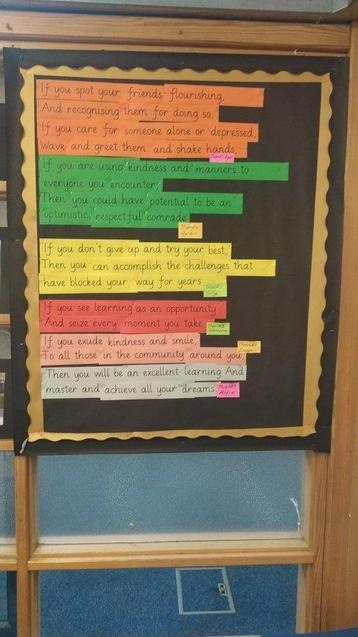 If you spot your friends flourishing,
And recognising them for doing so,
If you care for someone alone or depressed,
Wave and greet them and shake hands,
If you are using kindness and manners to
everyone you encounter,
Then you could have potential to be an
optimistic, respectful comrade
If you don't give up and try your best,
Then you can accomplish the challenges that
have blocked your way for years
If you see learning as an opportunity
And seize every moment you take
If you exude kindness and smile,
To all those in the community around you,
Then you will be an excellent learning And
master and achieve all your dreams